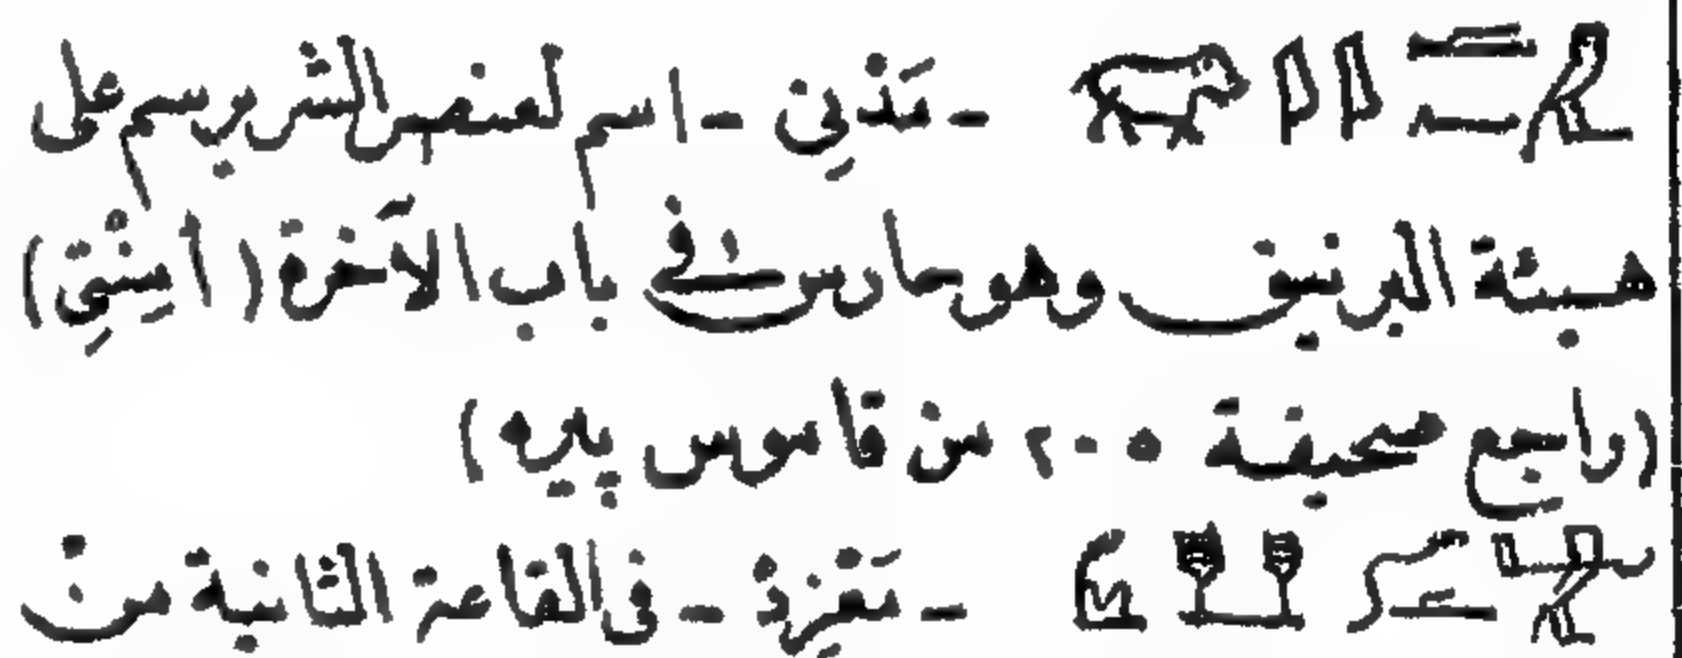 - مَذنِى - اسم لعنصر الشر يرسم على
هيئة البرنيق وهو حارس فى باب الآخرة (أمِنْتِى)
(راجع صحيفة ٢٠٥ من قاموس پيره)
- فى القاعة الثانية من